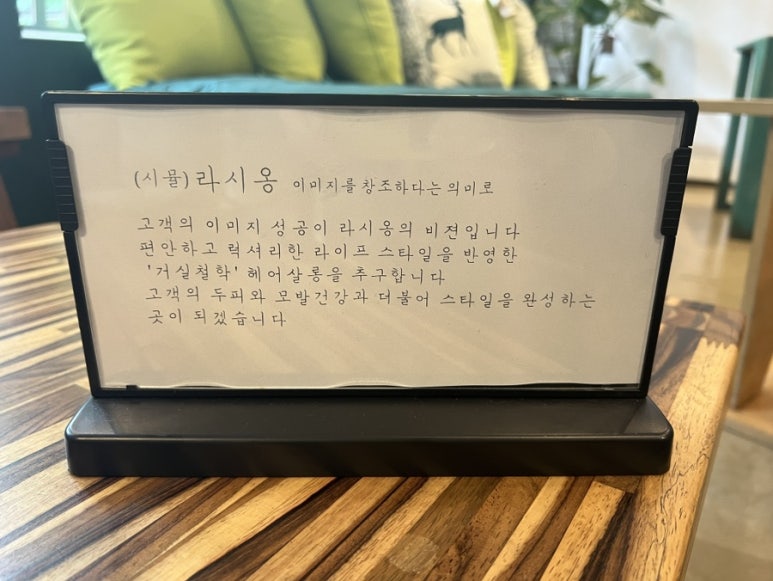 (시뮬) 라시옹 이미지를 창조하다는 의미로
고객의 이미지 성공이 라시옹의 비젼입니다
편안하고 럭셔리한 라이프 스타일을 반영한
'거실철학' 헤어살롱을 추구합니다
고객의 두피와 모발건강과 더불어 스타일을 완성하는
곳이 되겠습니다